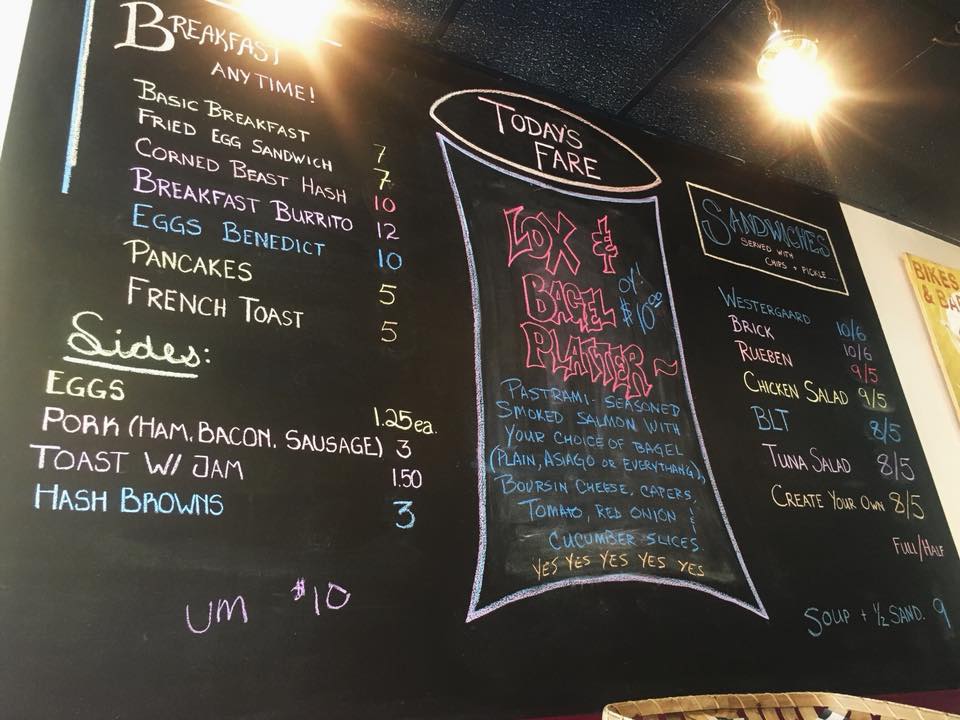 BREAKFAST
ANYTIME!
BASIC BREAKFAST 7
FRIED EGG SANDWICH 7
CORNED BEAST HASH 10
BREAKFAST BURRITO 12
EGGS BENEDICT 10
PANCAKES 5
FRENCH TOAST 5
Sides:
EGGS 1.25ea.
PORK (HAM, BACON, SAUSAGE) 3
TOAST W/ JAM 1.50
HASH BROWNS 3
UM $10
TODAY'S
FARE
LOX &
BAGEL
PLATTER~
$10
PASTRAMI-SEASONED
SMOKED SALMON WITH
YOUR CHOICE OF BAGEL
(PLAIN, ASIAGO OR EVERYTHANG),
BOURSIN CHEESE, CAPERS,
TOMATO, RED ONION &
CUCUMBER SLICES.
YES YES YES YES YES
SANDWICHES
SERVED WITH
CHIPS + PICKLE
WESTERGAARD 10/6
BRICK 10/6
RUEBEN 9/5
CHICKEN SALAD 9/5
BLT 8/5
TUNA SALAD 8/5
CREATE YOUR OWN 8/5
FULL/HALF
SOUP + 1/2 SAND. 9
BIKES